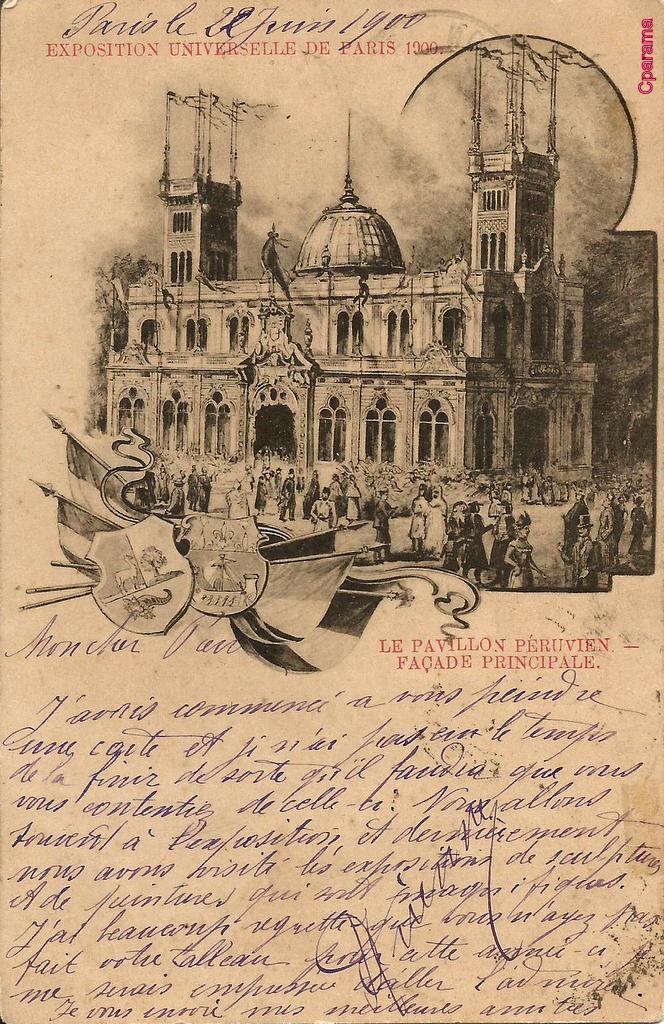 Paris le 22 Juin 1900
EXPOSITION UNIVERSELLE DE PARIS 1900.
Cparama
LE PAVILLON PÉRUVIEN. —
FAÇADE PRINCIPALE.
Mon cher
J'avais commencé a vous peindre
une carte et je n'ai pas eu le temps
de la finir de sorte qu'il faudra que vous
vous contentiez de celle-ci. Nous allons
souvent à l'exposition et dernièrement
nous avons visité les expositions de sculpture
et de peintures qui sont magnifiques.
J'ai beaucoup regretté que vous n'ayez pas
fait votre tableau pour cette année-ci je
me serais empressée d'aller l'admirer.
Je vous envoie mes meilleures amitiés